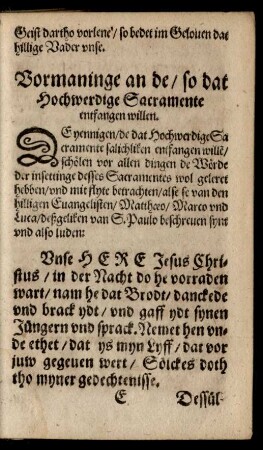 Geist dartho vorlene/ so bedet im Gelouen dat
hillige Vader vnse.
Vormaninge an de/ so dat
Hochwerdige Sacramente
entfangen willen.
DE yennigen/ de dat Hochwerdige Sa
cramente salichliken entfangen wille/
schölen vor allen dingen de Wörde
der insettinge desses Sacramentes wol geleret
hebben/ vnd mit flyte betrachten/ alse se van den
hilligen Euangelisten/ Mattheo/ Marco vnd
Luca/ deßgeliken van S. Paulo beschreuen synt
vnd also luden:
Vnse HERE Jesus Chri-
stus/ in der Nacht do he vorraden
wart/ nam he dat Brodt/ danckede
vnd brack ydt/ vnd gaff ydt synen
Jüngern vnd sprack. Nemet hen vn-
de ethet/ dat ys myn Lyff/ dat vor
juw gegeuen wert/ Sölckes doth
tho myner gedechtenisse.
E Dessül-